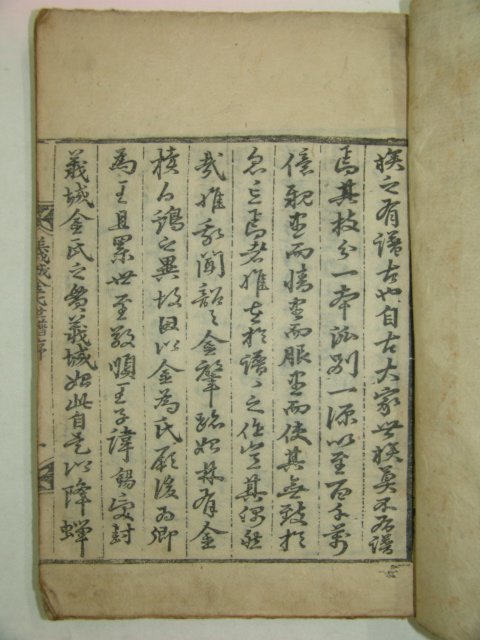 族之有譜古也自古大家世族莫不有譜
焉其枝分一本派別一源以至百千萬
億親盡而情盡而服盡而使其無致於
忽忘焉者惟在於譜譜之作豈其偶然
哉惟我聞韶之金肇跡始林有金
櫝白鷄之異故因以金為氏厥後為卿
為王且累世至敬順王子諱錫受封
義城金氏之貫義城始此自是以降蟬
義城金氏世譜序
一